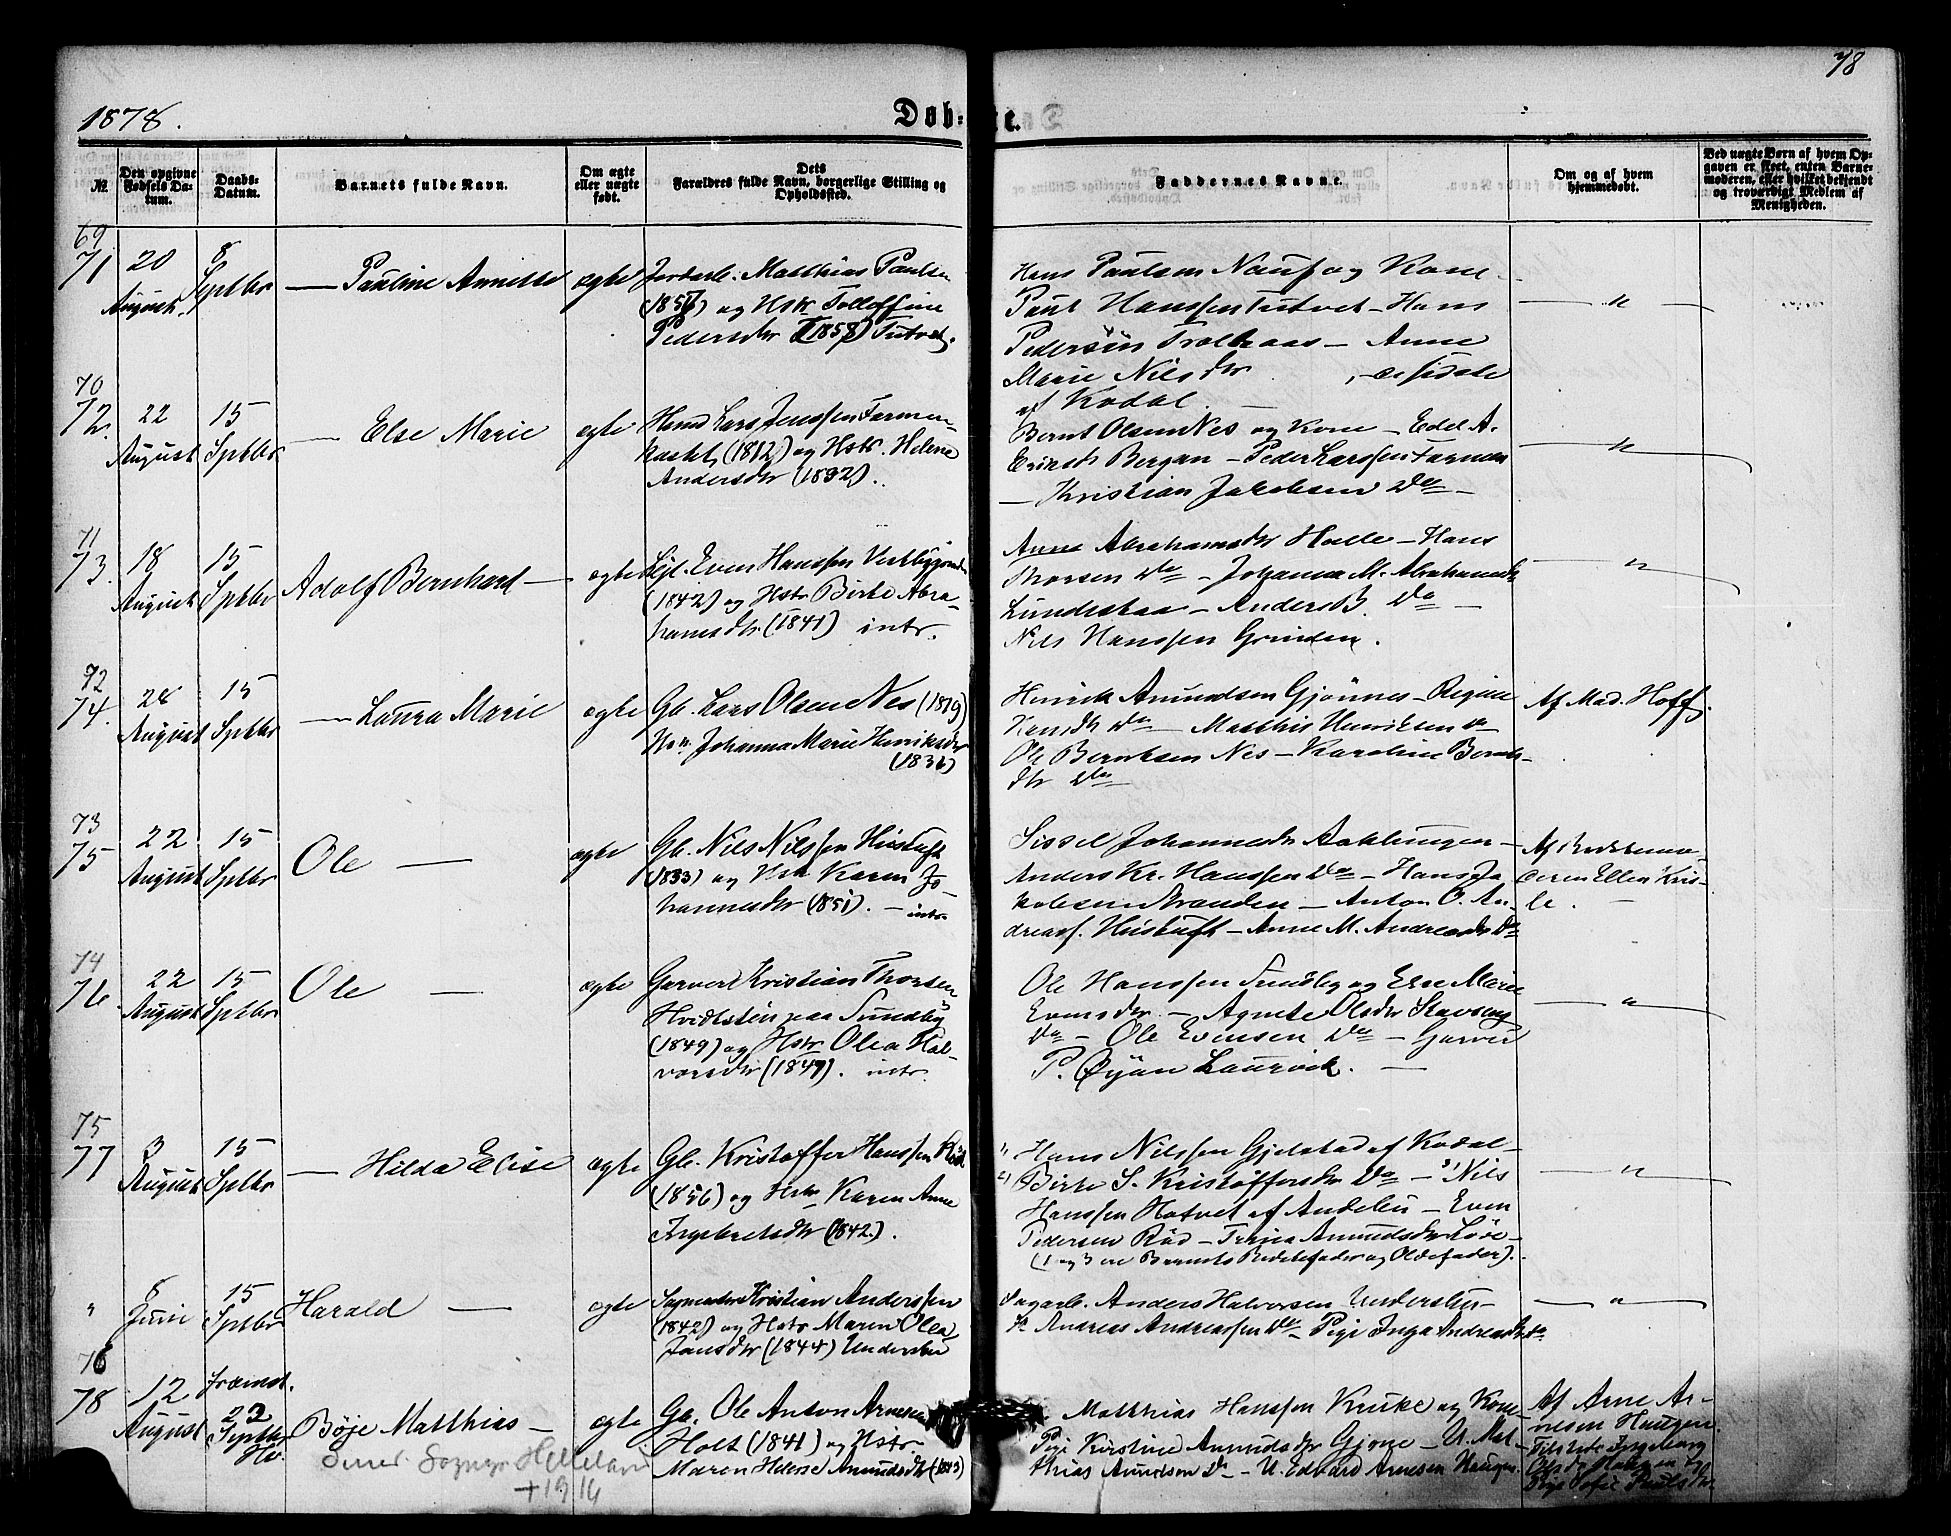 78
1878.
Døbte.
№
Den opgivne Fødsels Datum.
Daabs-Datum.
Barnets fulde Navn.
Om ægte eller uægte født.
Dets Forældres fulde Navn, borgerlige Stilling og Opholdssted.
Faddernes Navne.
Om og af hvem hjemmedøbt.
Ved uægte Børn af hvem Opgaven er skeet, enten Barnemoderen, eller hvilket bekjendt og troværdigt Medlem af Menigheden.
69
71
20 August
8 Septbr
— Pauline Annette
ægte
Jordarb. Matthias Paulsen
(1856) og Hstr
Pedersdtr (1858) Tutvet.
Hans Paulsen Nauf og Kone
Paul Hanssen Tutvet – Hans
Pedersen – Anne
Marie Nilsdtr
af Kodal.
— " —
70
72.
22 August
15 Septbr
— Else Marie
ægte
Lars Jenssen Farmen-
(1812) og Hstr. Helene
Andersdtr (1832).
Bernt Olsen Nes og Kone – Edel A.
Bergan – Peder Larssen Farmen
— Kristian Jakobsen Do —
— " —
71
73.
18 August
15 Septbr
Adolf Bernhard —
ægte
Even Hanssen
(1842) og Hstr Birte Abra-
hamsdtr. (1841) intr.
Anne Abrahamsdtr Holle – Hans
Thorsen Do – Johanne M. Abrahamsdtr
Anders B. Do —
Nils Hanssen Grinden.
— " —
72
74.
28 August
15 Septbr
— Laura Marie
ægte
Gb. Lars Olsen Nes (1819)
Hstr. Johanne Marie Henriksdtr
(1836)
Henrik Amundsen Gjønnes – Regine
Hansdtr Do – Matthis Henriksen Do
Ole Berntsen Nes – Karoline Bernts-
dtr Do
Af Mad. Hoff.
73
75
22 August
15 Septbr
Ole —
ægte
Gb. Nils Nilssen Himtuft
(1833) og Hstr Karen Jo-
hannesdtr (1851). – intr.
Sissel Johannesdtr Aaklungen –
Anders Kr. Hanssen Do – Hans Ja-
kobsen Stranden – Anton O. An-
dreass. Himtuft – Anne M. Andreasdtr Do
deren Ellen Kris-
74
76.
22 August
15 Septbr
Ole —
ægte
Garver Kristian Thorsen
Hvidtsten paa Sundby
(1849) og Hstr Olea Hal-
vorsdtr (1849). intr.
Ole Hanssen Sundby og Else Marie
Evensdtr. – Agnete Olsdtr
Do – Ole Evensen Do – Garver
P. Øyan Laurvik. —
— " —
75
77
3 August
15 Septbr
— Hilda Elise
ægte
Gb. Kristoffer Hanssen Rød
(1856) og Hstr Karen Anne
Ingebretsdtr (1842).
1) Hans Nilssen Gjelstad af Kodal –
2) Birte S. Kristoffersdtr Do – 3) Nils
Hanssen Hotvet af Andebu – Even
Pedersen Rød – Amundsdtr Løve –
(1 og 3 ere Barnets Bedstefader og Oldefader).
— " —
"
8 Juni
15 Septbr
Harald —
ægte
Kristian Anderssen
(1842) og Hstr Maren Olea
Jansdtr (1844) Undersbu
Anders Halvorsen Undersbu –
Andreas Andreassen Do – Pige Inga Andreasdtr Do
— " —
76
78
12 August
Fremst.
22 Septbr
Bøje Matthias —
ægte
Gb. Ole Anton Arnesen
Holt (1841) og Hstr
Maren Helene Amundsdtr (1843)
Matthias Hanssen Kruke og Kone –
Pige Kirstine Amundsdtr Gjone – U. Mat-
thias Amundsen Do – U. Edvard Arnesen Haugen.
Af Arne Ar-
nesen Haugen.
Ingeborg
Olsdtr Haugen og
Pige Sofie Paulsdtr
+ 1916